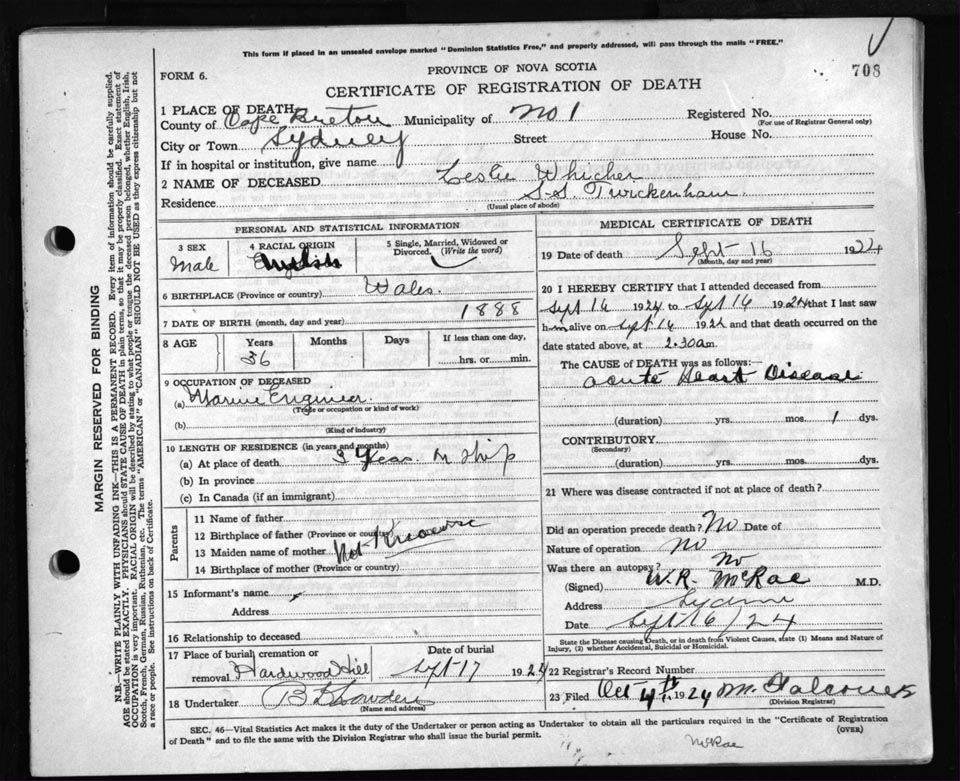 This form if placed in an unsealed envelope marked "Dominion Statistics Free," and properly addressed, will pass through the mails "FREE."
708
FORM 6.
PROVINCE OF NOVA SCOTIA
CERTIFICATE OF REGISTRATION OF DEATH
MARGIN RESERVED FOR BINDING
N.B.—WRITE PLAINLY WITH UNFADING INK—THIS IS A PERMANENT RECORD. Every item of information should be carefully supplied.
AGE should be stated EXACTLY. PHYSICIANS should STATE CAUSE OF DEATH in plain terms, so that it may be properly classified. Exact statement of
OCCUPATION is very important. RACIAL ORIGIN will be described by stating to what people or tongue the deceased person belonged, whether English, Irish,
Scotch, French, German, Russian, Ruthenian, etc. The terms "AMERICAN" or "CANADIAN" SHOULD NOT BE USED as they express citizenship but not
a race or people. See instructions on back of Certificate.
1 PLACE OF DEATH
County of Cape Breton Municipality of No 1 Registered No.
(For use of Registrar General only)
City or Town Sydney Street House No.
If in hospital or institution, give name
2 NAME OF DECEASED Leslie Whicher
Residence S.S. Twickenham
(Usual place of abode)
PERSONAL AND STATISTICAL INFORMATION
3 SEX Male
4 RACIAL ORIGIN English
5 Single, Married, Widowed or Divorced. (Write the word)
6 BIRTHPLACE (Province or country) Wales
7 DATE OF BIRTH (month, day and year) 1888
8 AGE Years 36 Months Days If less than one day, hrs. or min.
9 OCCUPATION OF DECEASED
(a) Marine Engineer
(Trade or occupation or kind of work)
(b)
(Kind of industry)
10 LENGTH OF RESIDENCE (in years and months)
(a) At place of death 3 Years. in ship
(b) In province
(c) In Canada (if an immigrant)
Parents
11 Name of father
12 Birthplace of father (Province or country)
13 Maiden name of mother Not Known
14 Birthplace of mother (Province or country)
15 Informant's name
Address
16 Relationship to deceased
17 Place of burial cremation or removal Hardwood Hill
Date of burial Sept 17 1924
18 Undertaker
(Name and address)
MEDICAL CERTIFICATE OF DEATH
19 Date of death Sept 16 1924
(Month, day and year)
20 I HEREBY CERTIFY that I attended deceased from
Sept 16 1924 to Sept 16 1924 that I last saw
him alive on Sept 16 1924 and that death occurred on
date stated above, at 2.30 am
The CAUSE of DEATH was as follows:
Acute Heart Disease
(duration) yrs. mos. 1 dys.
CONTRIBUTORY
(Secondary)
(duration) yrs. mos. dys.
21 Where was disease contracted if not at place of death?
Did an operation precede death? No Date of
Nature of operation no
Was there an autopsy? no
(Signed) W.R. McRae M.D.
Address Sydney
Date Sept 16/24
State the Disease causing Death, or in death from Violent Causes, state (1) Means and Nature of
Injury, (2) whether Accidental, Suicidal or Homicidal.
22 Registrar's Record Number
23 Filed Oct 4th 1924
(Division Registrar)
SEC. 46—Vital Statistics Act makes it the duty of the Undertaker or person acting as Undertaker to obtain all the particulars required in the "Certificate of Registration
of Death" and to file the same with the Division Registrar who shall issue the burial permit.
(OVER)
McRae